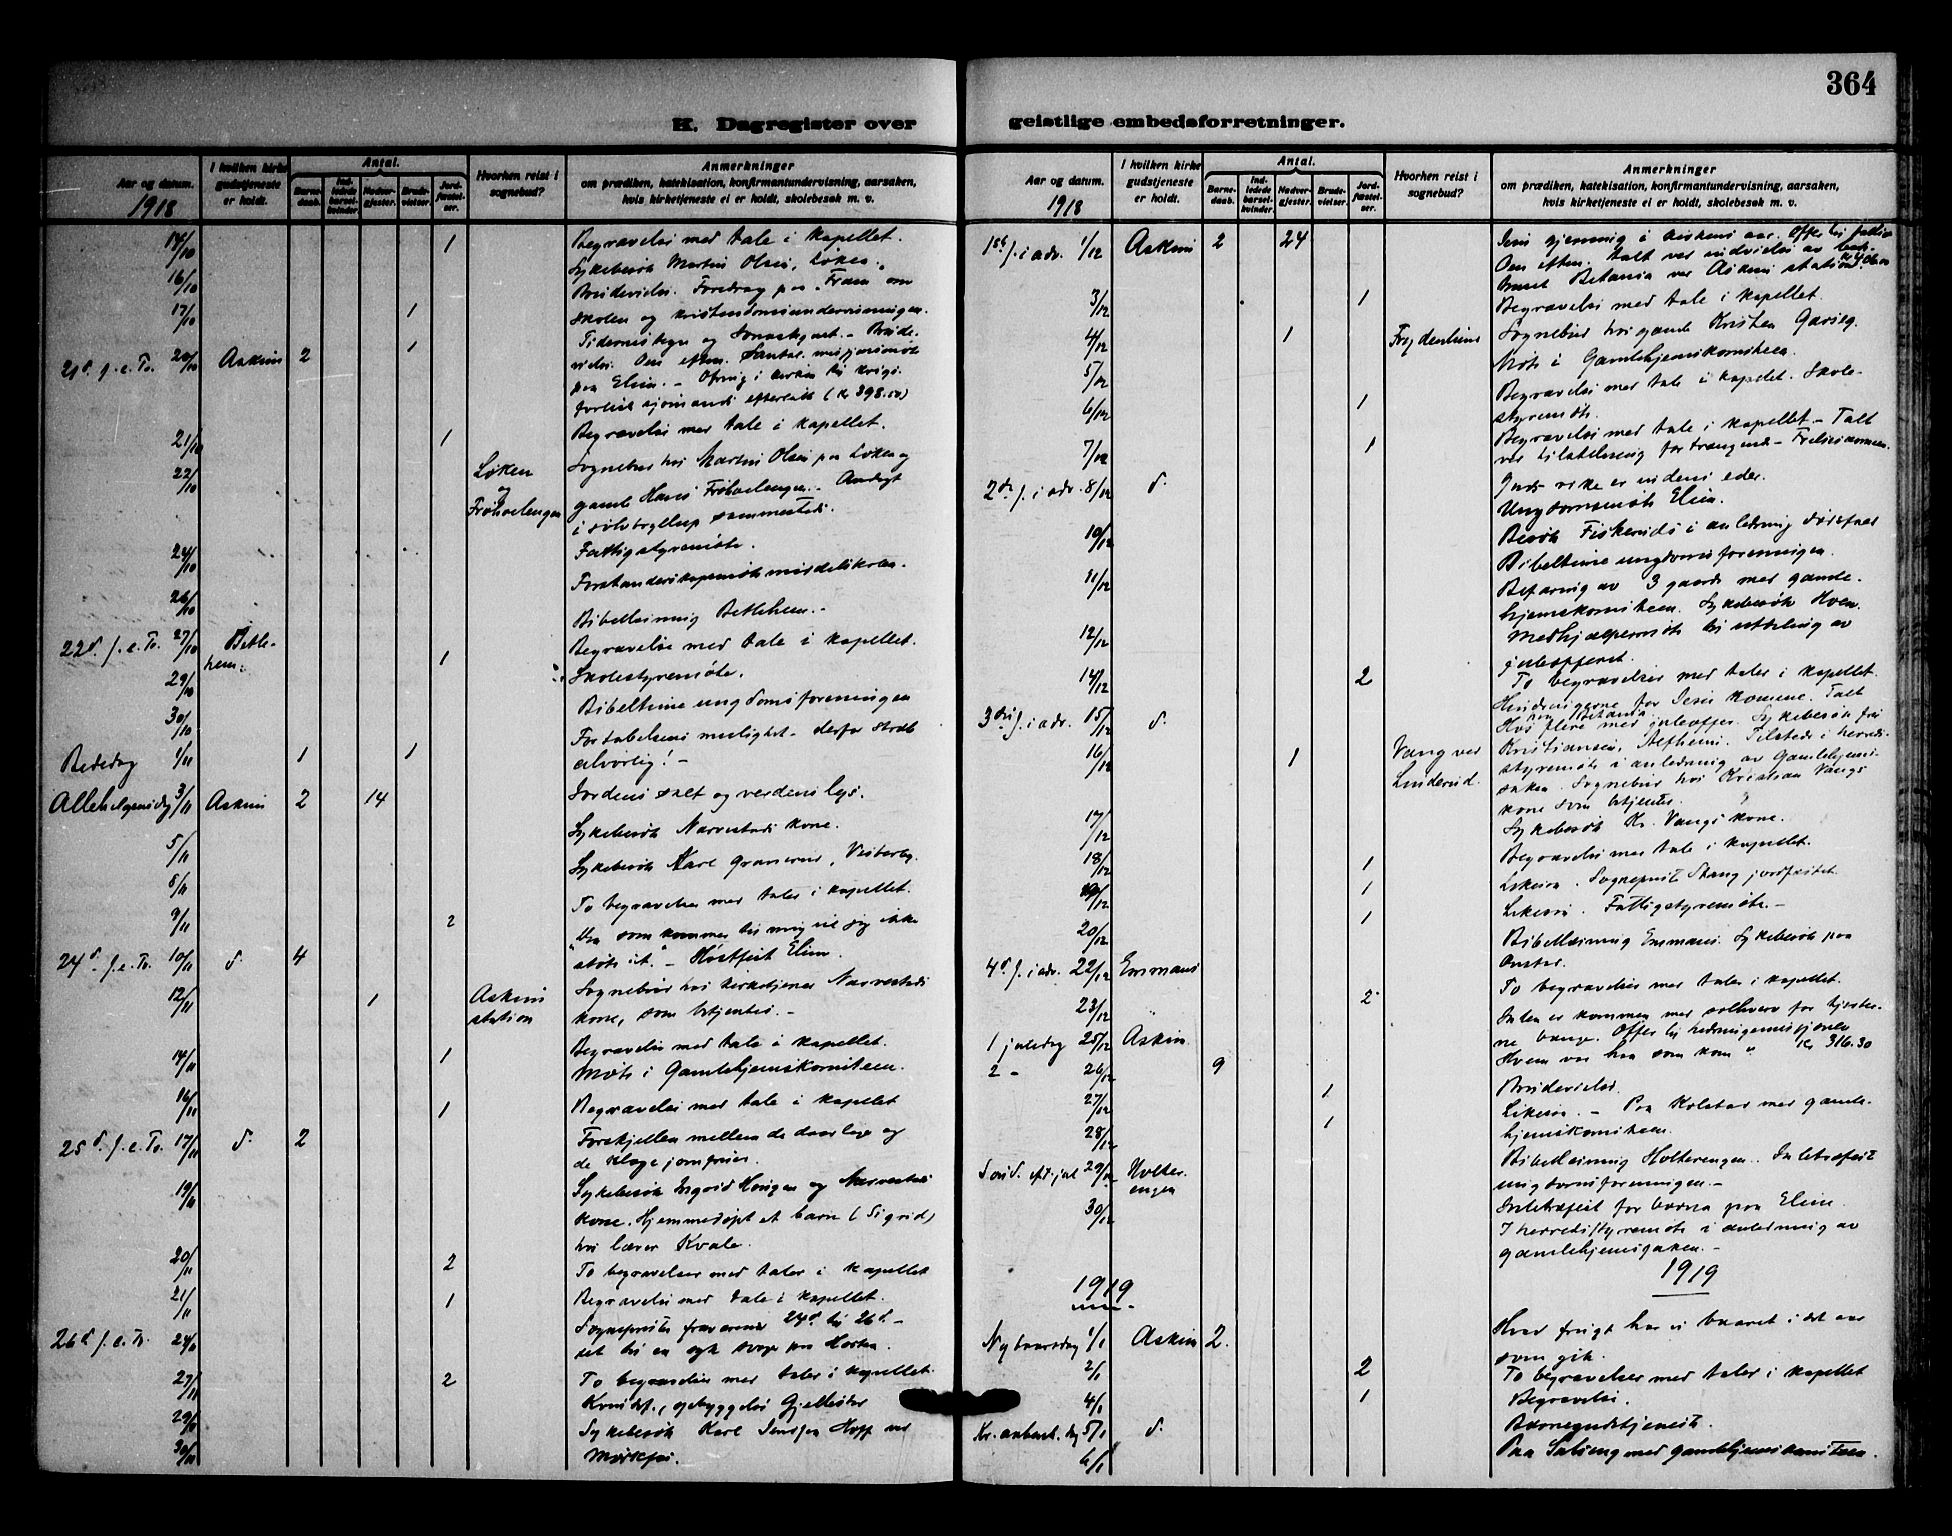 364
K. Dagregister over
geistlige embedsforretninger.
Aar og datum.
1918
I hvilken kirke
gudstjeneste
er holdt.
Antal.
Barne-
daab.
Ind-
ledede
barsel-
kvinder.
Nadver-
gjester.
Brude-
vielser.
Jord-
fæstel-
ser.
Hvorhen reist i
sognebud?
Anmerkninger
om prædiken, katekisation, konfirmantundervisning, aarsaken,
hvis kirketjeneste ei er holdt, skolebesøk m. v.
14/10 1 Begravelse med tale i kapellet.
Sykebesøk Martin Olsen, Løken.
16/10 Brudevielse. Foredrag paa "Fram" om
17/10 1 skolen og kristendomsundervisningen.
Tidernes tegn og
21d. s. e. Tr. 20/10 Askim 2 1
paa Elim. - Ofring i kirken til krigs-
forlist sjømænds efterlatte (kr 398.50)
Begravelse med tale i kapellet.
21/10 1
22/10 Løken
og
Frøhaelengen
Sognebud hos Martin Olsen paa Løken og
gamle Hans Frøhaelengen. - Andagt
i sølvbryllup sammesteds.
24/10 Fattigstyremøte.
Forstanderskapsmøte middelskolen.
26/10
Bibellæsning Betlehem. -
22d. s. e. Tr. 27/10 Betle-
hem.
Begravelse med tale i kapellet.
1
29/10 Skolestyremøte.
Bibeltime ungdomsforeningen
30/10 Fortabelsens mulighet - derfor stræb
Bededag 1/11 1 1 alvorlig! -
Allehelgensdag 3/11 Askim 2 14 Jordens salt og verdens lys.
Sykebesøk Narvestads kone.
5/11
Sykebesøk Karl Granerud, Vesterby.
8/11
To begravelser med taler i kapellet.
9/11 2 "Den som kommer til mig vil jeg ikke
24d. s. e. Tr. 10/11 d. 4 støte ut." - Høstfest Elim.
12/11 1 Askim
station
Sognebud hos kirketjener Narvestads
kone, som betjentes. -
Begravelse med tale i kapellet.
14/11 1 Møte i Gamlehjemskomiteen.
16/11 1 Begravelse med tale i kapellet
25d. s. e. Tr. 17/11 d. 2 Forskjellen mellem de daarlige og
de kloge jomfruer.
19/11 Sykebesøk Ingrid Haugen og Narvestads
kone. Hjemmedøpt et barn (Sigrid)
hos lærer Kvale.
20/11 2 To begravelser med taler i kapellet
21/11 1 Begravelse med tale i kapellet.
Sogneprest fraværende 24d. til 26d. -
26d s. e. Tr. 24/11 set til en syk svoger paa Horten.
27/11 2 To begravelser med taler i kapellet.
29/11
30/11 Sykebesøk Karl
Aar og datum.
1918
I hvilken kirke
gudstjeneste
er holdt.
Antal.
Barne-
daab.
Ind-
ledede
barsel-
kvinder.
Nadver-
gjester.
Brude-
vielser.
Jord-
fæstel-
ser.
Hvorhen reist i
sognebud?
Anmerkninger
om prædiken, katekisation, konfirmantundervisning, aarsaken,
hvis kirketjeneste ei er holdt, skolebesøk m. v.
1ste s. i adv. 1/12 Askim 2 24
Jesu gjerning i kirkens aar. Offer til
Om eftm. talt ved indvielse av bede-
huset Betania ved Askim station
3/12 1 Begravelse med tale i kapellet.
4/12 1 Frydenhem Sognebud hos gamle Kristen
5/12 Møte i Gamlehjemskomiteen.
Begravelse med tale i kapellet. Skole-
6/12 1 styremøte.
Begravelse med tale i kapellet - Talt
7/12 1 ved tilstelning for trængende
2den s. i adv. 8/12 d. Guds rike er indeni eder.
Ungdomsmøte Elim.
10/12 Besøk Fiskerud i anledning dødsfald
Bibeltime ungdomsforeningen.
11/12 Befaring av 3 gaarde med gamle-
hjemskomiteen. Sykebesøk Hoen.
12/12 Medhjælpermøte til utdeling av
juleofferet.
14/12 2 To begravelser med taler i kapellet.
3die s. i adv. 15/12 d. Hindringerne for Jesu komme. Talt
paa Betania
Hos flere med juleoffer. Sykebesøk frk
16/12 1 Vang ved
Linderud.
Kristiansen, Alfheim. Tilstede i herreds-
styremøte i anledning av Gamlehjems-
saken. Sognebud hos Kristian Vangs
kone som betjentes.
17/12 Sykebesøk Kr. Vangs kone.
18/12 1 Begravelse med tale i kapellet.
19/12 1 Likesaa. Sogneprest Skang jordfæstet.
20/12 1 Likesaa. Fattigstyremøte. -
Bibellæsning Emmaus. Sykebesøk paa
4d. s. i adv. 22/12 Emmaus
23/12 2 To begravelser med taler i kapellet.
1 juledag 25/12 Askim Julen er kommen med solhverv for hjerter-
ne bange. Offer til hedningemissjonen
kr 316.30
2 - 26/12 9 Hvem var han som kom"
27/12 1 Brudevielse.
28/12 1 Likesaa. - Paa Kolstad med gamle-
hjemskomiteen.
Sønd. eft. jul 29/12 Holter-
engen
Bibellæsning Holterengen. Juletræfest
ungdomsforeningen. -
30/12 Juletræfest for barna paa Elim.
I herredsstyremøte i anledning av
gamlehjemssaken. -
1919
1919
Nytaarsdag 1/1 Askim 2. Hvad frugt har vi baaret i det aar
som gik.
2/1 2 To begravelser med taler i kapellet
4/1 1 Begravelse.
Kr. aabenb. dag 5/1 d. Barnegudstjeneste.
6/1 Paa Solbrug med gamlehjemskomiteen.